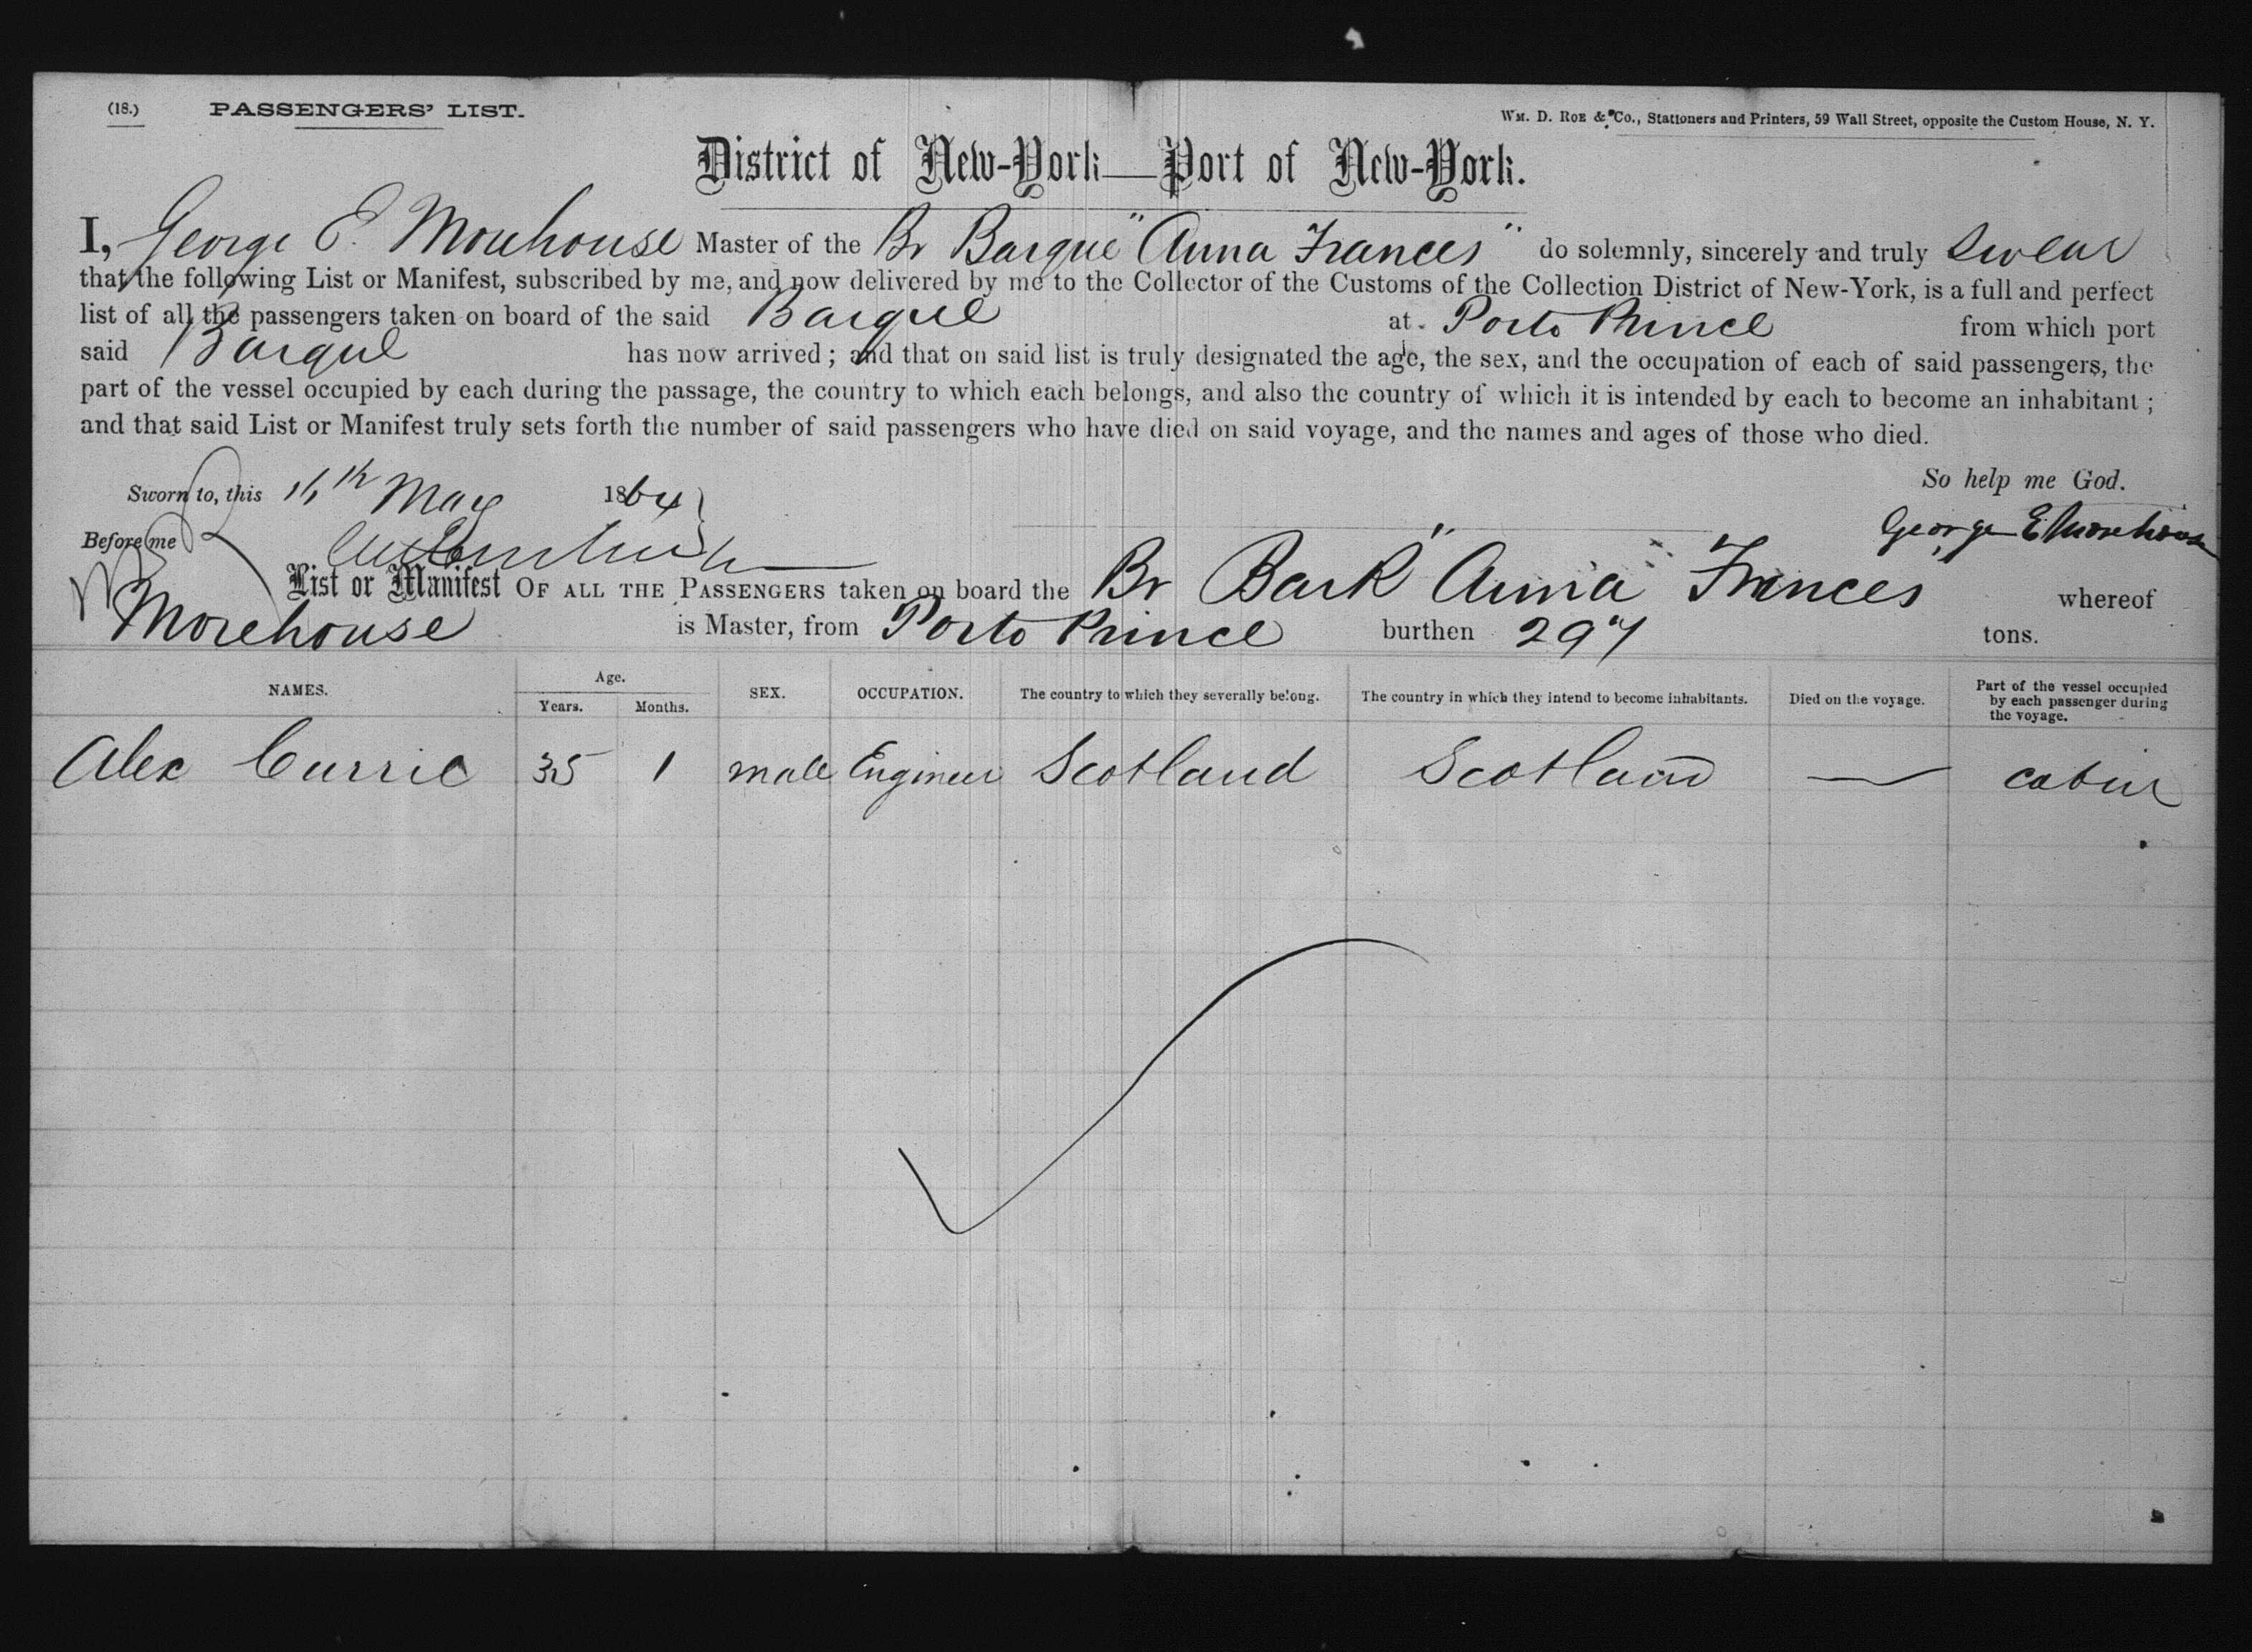 (18.) PASSENGERS' LIST.
WM. D. ROE & Co., Stationers and Printers, 59 Wall Street, opposite the Custom House, N. Y.
District of New-York—Port of New-York.
I, George E. Morehouse Master of the Br Barque "Anna Frances" do solemnly, sincerely and truly Swear
that the following List or Manifest, subscribed by me, and now delivered by me to the Collector of the Customs of the Collection District of New-York, is a full and perfect
list of all the passengers taken on board of the said Barque at Porto Prince from which port
said Barque has now arrived; and that on said list is truly designated the age, the sex, and the occupation of each of said passengers, the
part of the vessel occupied by each during the passage, the country to which each belongs, and also the country of which it is intended by each to become an inhabitant;
and that said List or Manifest truly sets forth the number of said passengers who have died on said voyage, and the names and ages of those who died.
So help me God.
Sworn to, this th May 1864
George E Morehouse
Before me
List or Manifest OF ALL THE PASSENGERS taken on board the Br Bark "Anna Frances" whereof
Morehouse is Master, from Porto Prince burthen 297 tons.
NAMES. Age. Years. Months. SEX. OCCUPATION. The country to which they severally belong. The country in which they intend to become inhabitants. Died on the voyage. Part of the vessel occupied by each passenger during the voyage.
Alex Currie 35 1 male Engineer Scotland Scotland — cabin